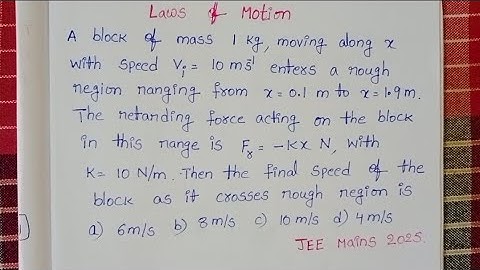 Laws of Motion
A block of mass 1 kg, moving along x
with speed Vi = 10 ms⁻¹ enters a rough
region ranging from x = 0.1 m to x = 1.9 m.
The retarding force acting on the block
in this range is Fr = -Kx N, with
K = 10 N/m. Then the final speed of the
block as it crosses rough region is
a) 6 m/s b) 8 m/s c) 10 m/s d) 4 m/s
JEE Mains 2025.